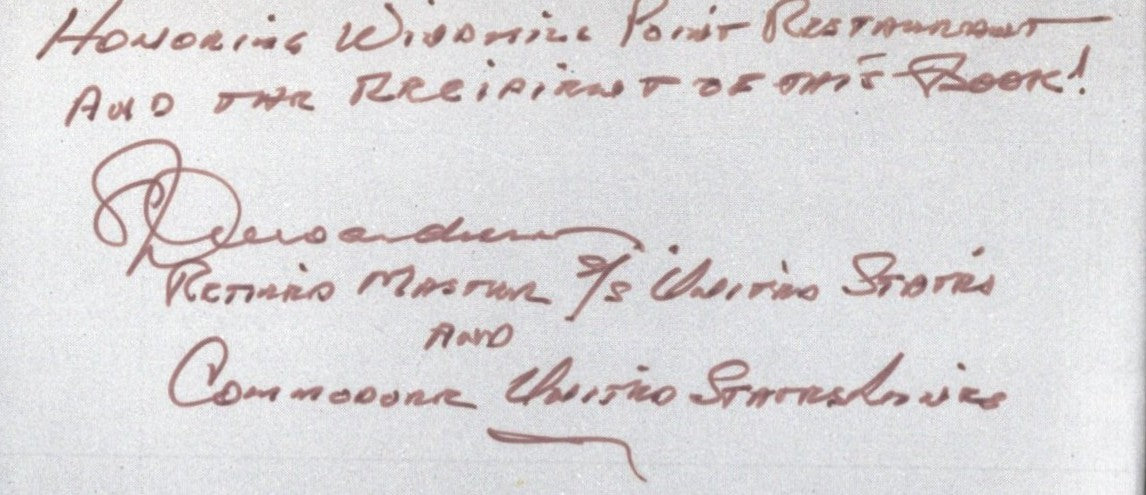 Honoring Windmill Point Restaurant
And the Recipient of this Book!
Retired Master S/S United States
and
Commodore United States Lines